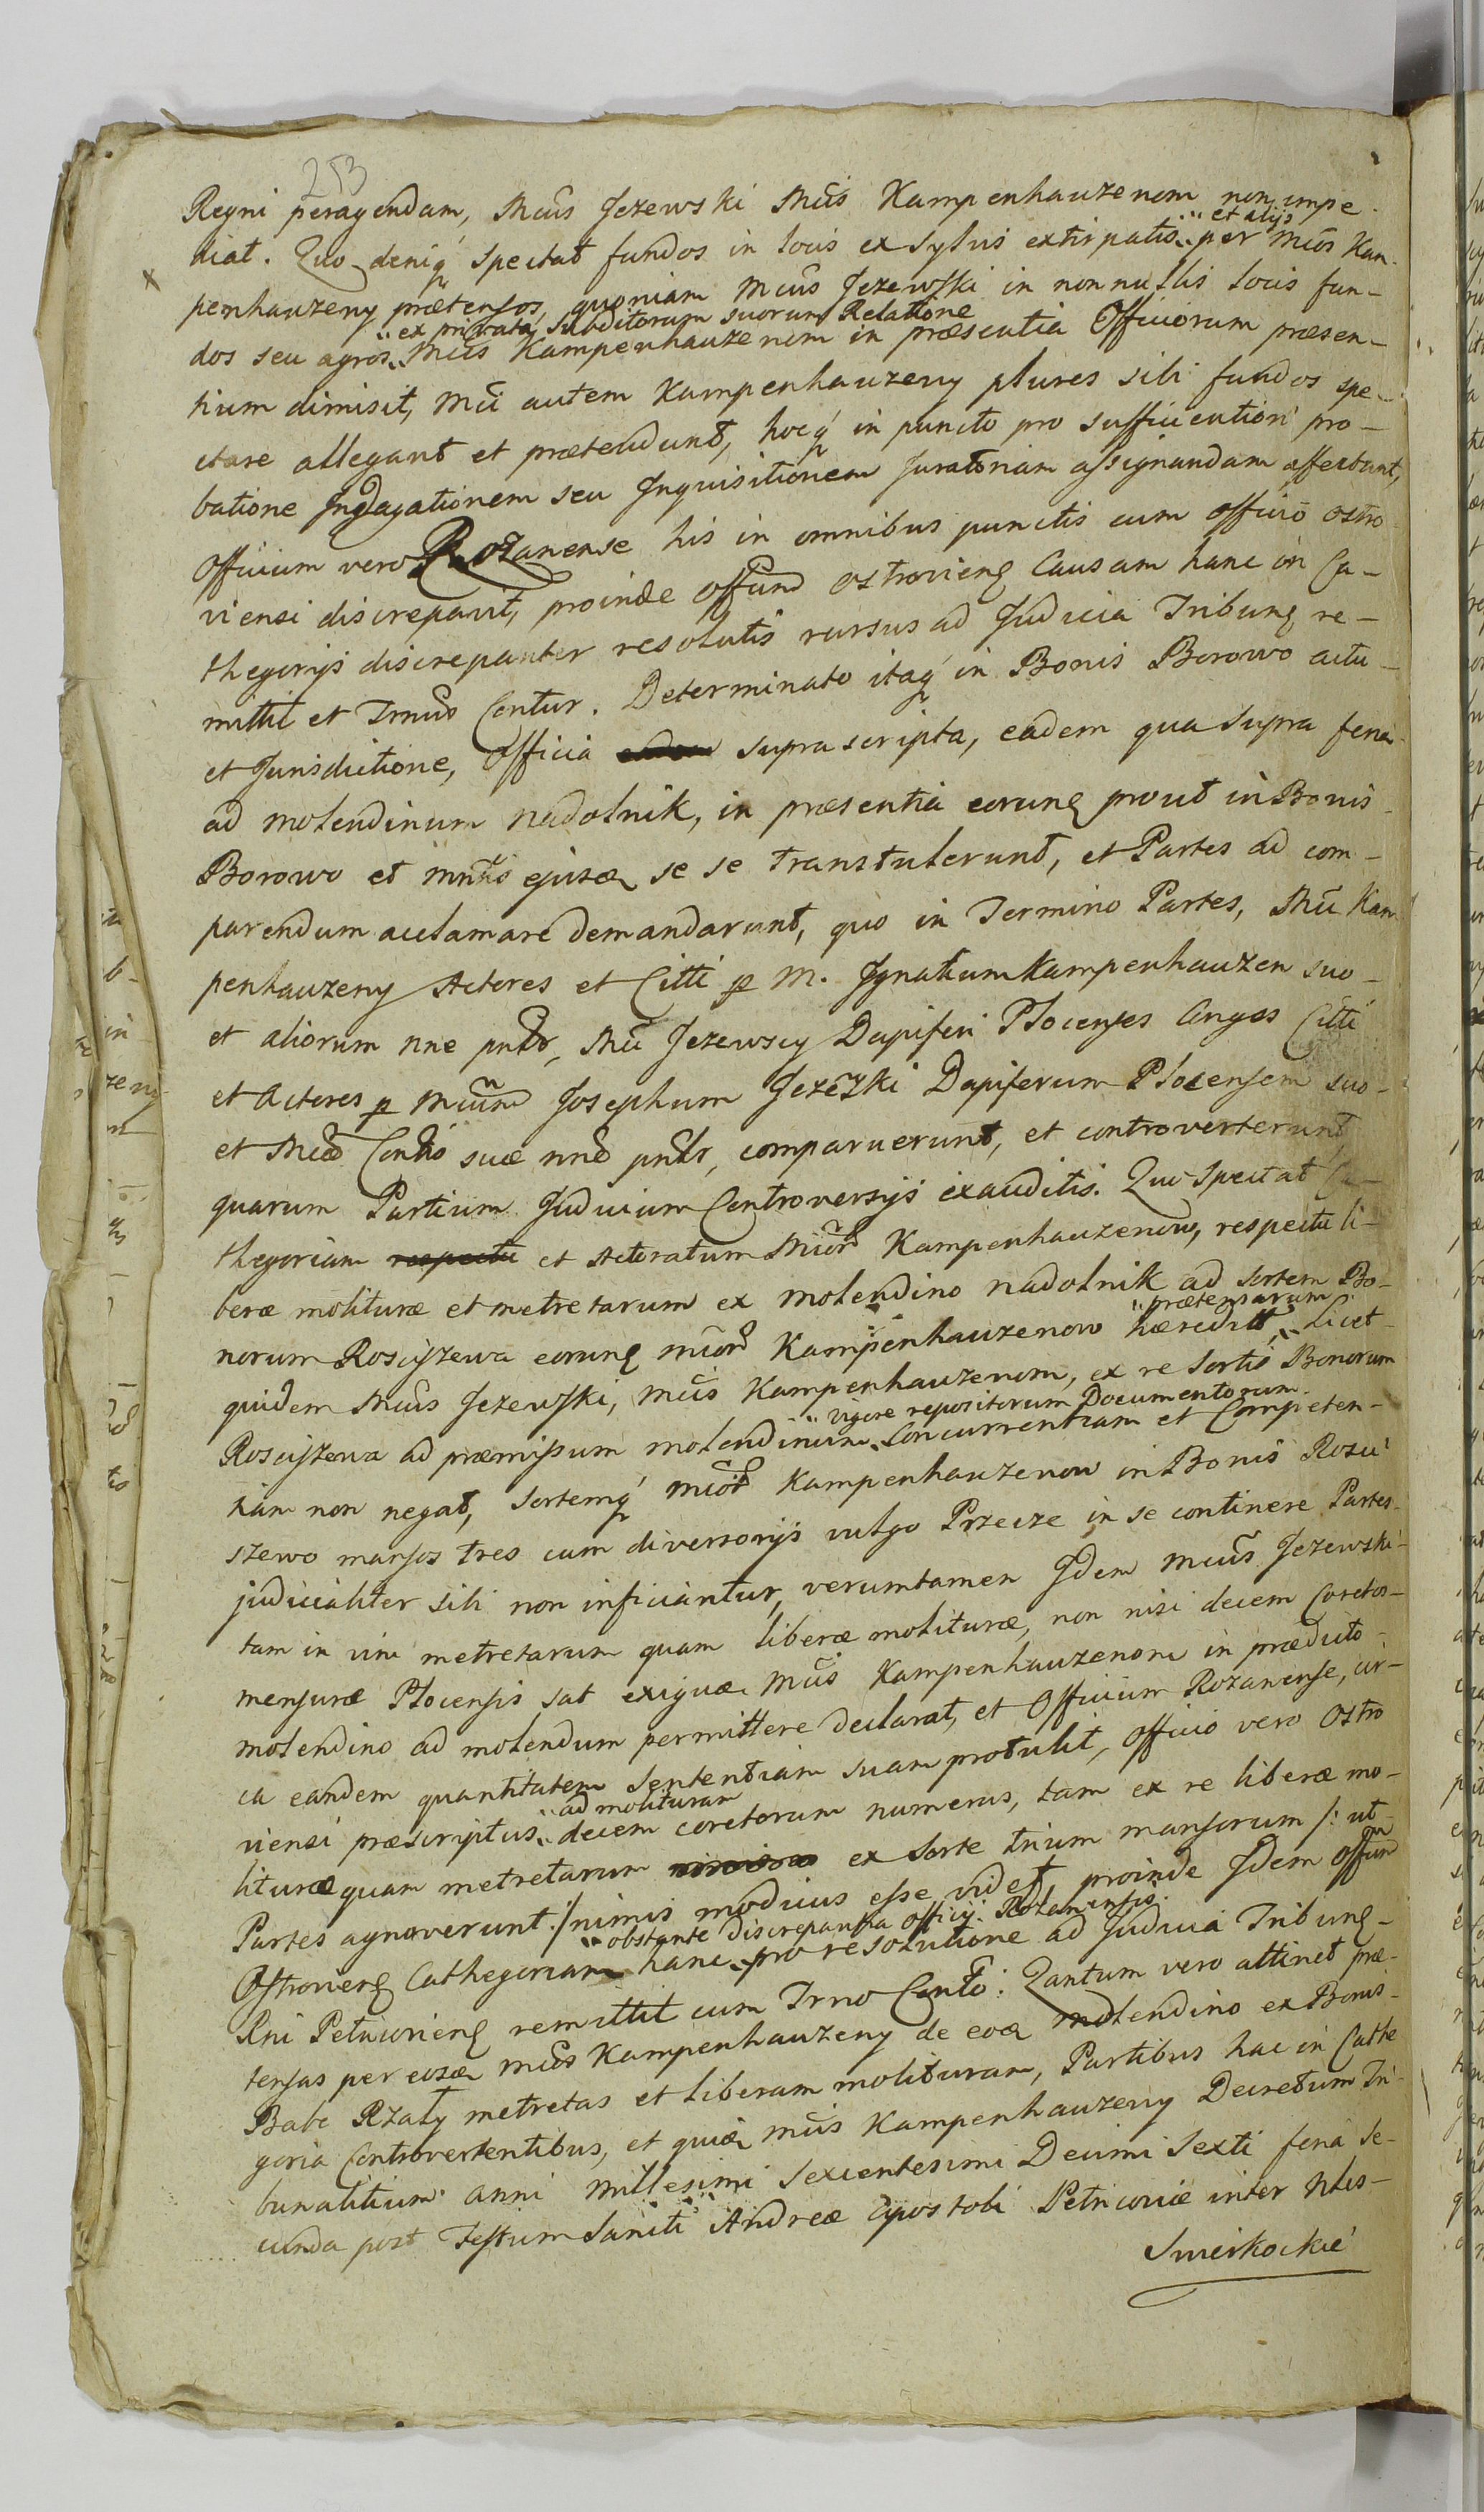 253
Regni peragendam, Mcus Jezewski Mcis Kampenhauzenom non impe-
diat. Quo deniq spectat fundos in locis ex sylvis extirpatis et alijs per Mcos Kam-
x
penhauzeny prætensos, quoniam Mcus Jezewski in nonnullis locis fun-
dos seu agros ex privata subditorum suorum Relatione Mcis Kampenhauzenom in præsentia Officiorum præsen-
tium dimisit, Mci autem Kampenhauzeny plures sibi fundos spe-
ctare allegant et prætendunt, hocq in puncto pro sufficientiori pro-
batione Indagationem seu Inquisitionem Juratoriam assignandam affectant,
Officium vero Rozanense his in omnibus punctis cum officio Ostro-
viensi discrepavit, proinde Offum Ostrovieng Causam hanc in Ca-
thegorijs discrepanter resolutis rursus ad Judicia Tribung re-
mittit et Trnus Contur. Determinato itaq in Bonis Borowo actu
et Jurisdictione, Officia supra scripta, eadem qua supra feria
ad molendinum Nadolnik, in præsentia eorung prout in Bonis
Borowo et mntis ejusd se se transtulerunt, et Partes ad com-
parendum acclamare demandarunt, quo in Termino Partes, Mci Kam-
penhauzeny Actores et Citti p M. Ignatium Kampenhauzen suo
et aliorum nne pntr, Mci Jezewscy Dapiferi Plocenses Conges Citti
et Actores p Mcum Josephum Jezewski Dapiferum Plocensem suo
et Mcæ Contis suæ nne pntr, comparuerunt, et controverterunt
quarum Partium Judicium Controversijs exauditis. Quo spectat Ca-
thegoriam et Actoratum Mcor Kampenhauzenow, respectu li-
beræ molituræ et metretarum ex molendino Nadolnik ad sortem Bo-
norum Rosciszewa eorung Mcor Kampenhauzenow hæredit prætensarum, Licet
quidem Mcus Jezewski, Mcis Kampenhauzenom, ex re sortis Bonorum
Rosciszewa ad præmissum molendinum vigore repositorum Documentorum concurrentiam et Competen-
tiam non negat, sortemq Mcor Kampenhauzenow in Bonis Rosci-
szewo mansos tres cum diversorijs vulgo Przecze in se continere Partes
judicialiter sibi non inficiantur, verumtamen Idem Mcus Jezewski
tam in vim metretarum quam liberæ molituræ, non nisi decem Coretos
mensuræ Plocensis sat exiguæ Mcis Kampenhauzenom in prædicto
molendino ad molendum permittere declarat, et Officium Rozanense, cir-
ca eandem quantitatem Sententiam suam protulit, Officio vero Ostro
viensi præscriptus ad molituram decem coretorum numerus, tam ex re liberæ mo-
lituræ quam metretarum ex Sorte trium mansorum /: ut
Partes agnoverunt :/ nimis modicus esse videt, proinde Idem Offum
Ostrovieng Cathegoriam hanc obstante discrepantia Officij Rozanensis pro resolutione ad Judicia Tribung
Rni Petricovieng remittit cum Trno Conto. Quantum vero attinet præ-
tensas per eosd Mcos Kampenhauzeny de eod molendino ex Bonis
Babe Rzaly metretas et liberam molituram, Partibus hac in Cathe
goria Controvertentibus, et quia Mcis Kampenhauzeny Decretum Tri-
bunalitium anni Millesimi Sexcentesimi Decimi Sexti feria se-
cunda post Festum Sancti Andreæ Apostoli Petricoviæ inter Nbles
Smerkockie